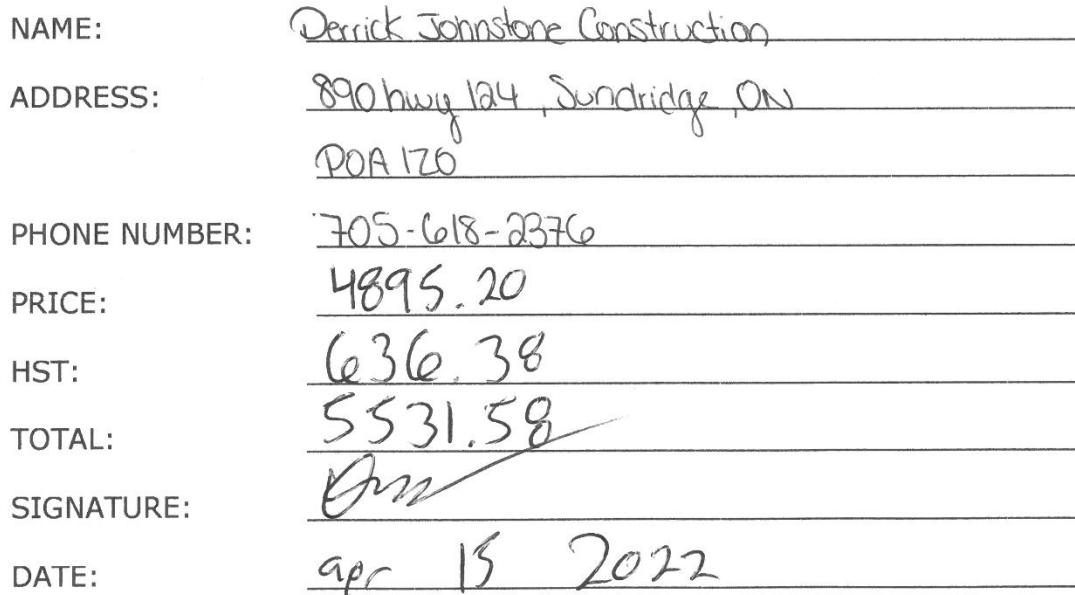 NAME: Derrick Johnstone Construction
ADDRESS: 890 hwy 124, Sundridge, ON
P0A 1Z0
PHONE NUMBER: 705-618-2376
PRICE: 4895.20
HST: 636.38
TOTAL: 5531.58
SIGNATURE:
DATE: apr 15 2022